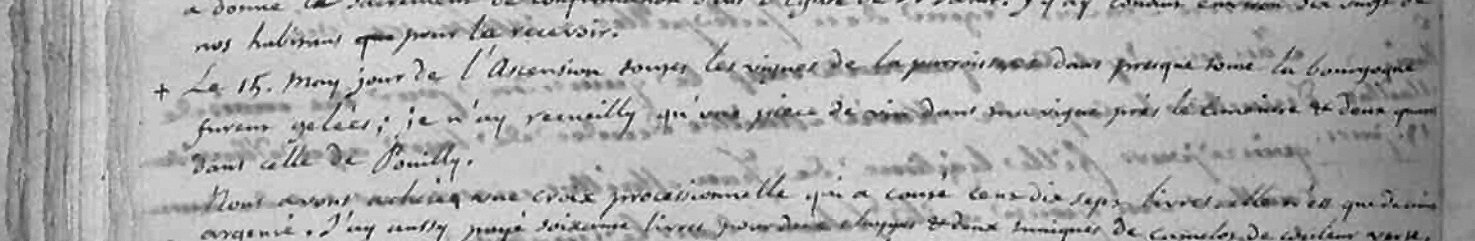 a donné le sacrement de confirmation dans l'Eglise de j'y ay conduit environ dix sept de
nos habitans pour la recevoir.
+ Le 15. May jour de l'Ascension toutes les vignes de la parroisse et dans presque toute la bourgogne
furent gelées; je n'ay recueilly qu'une piece de vin dans ma vigne près le cimetiere & deux
dans celle de Pouilly.
Nous avons acheté une croix processionnelle qui a couté cent dix sept livres elle n'est que de cuivre
argenté. J'ay aussy payé soixante livres pour deux chappes & deux tuniques de camelot de couleur verte.